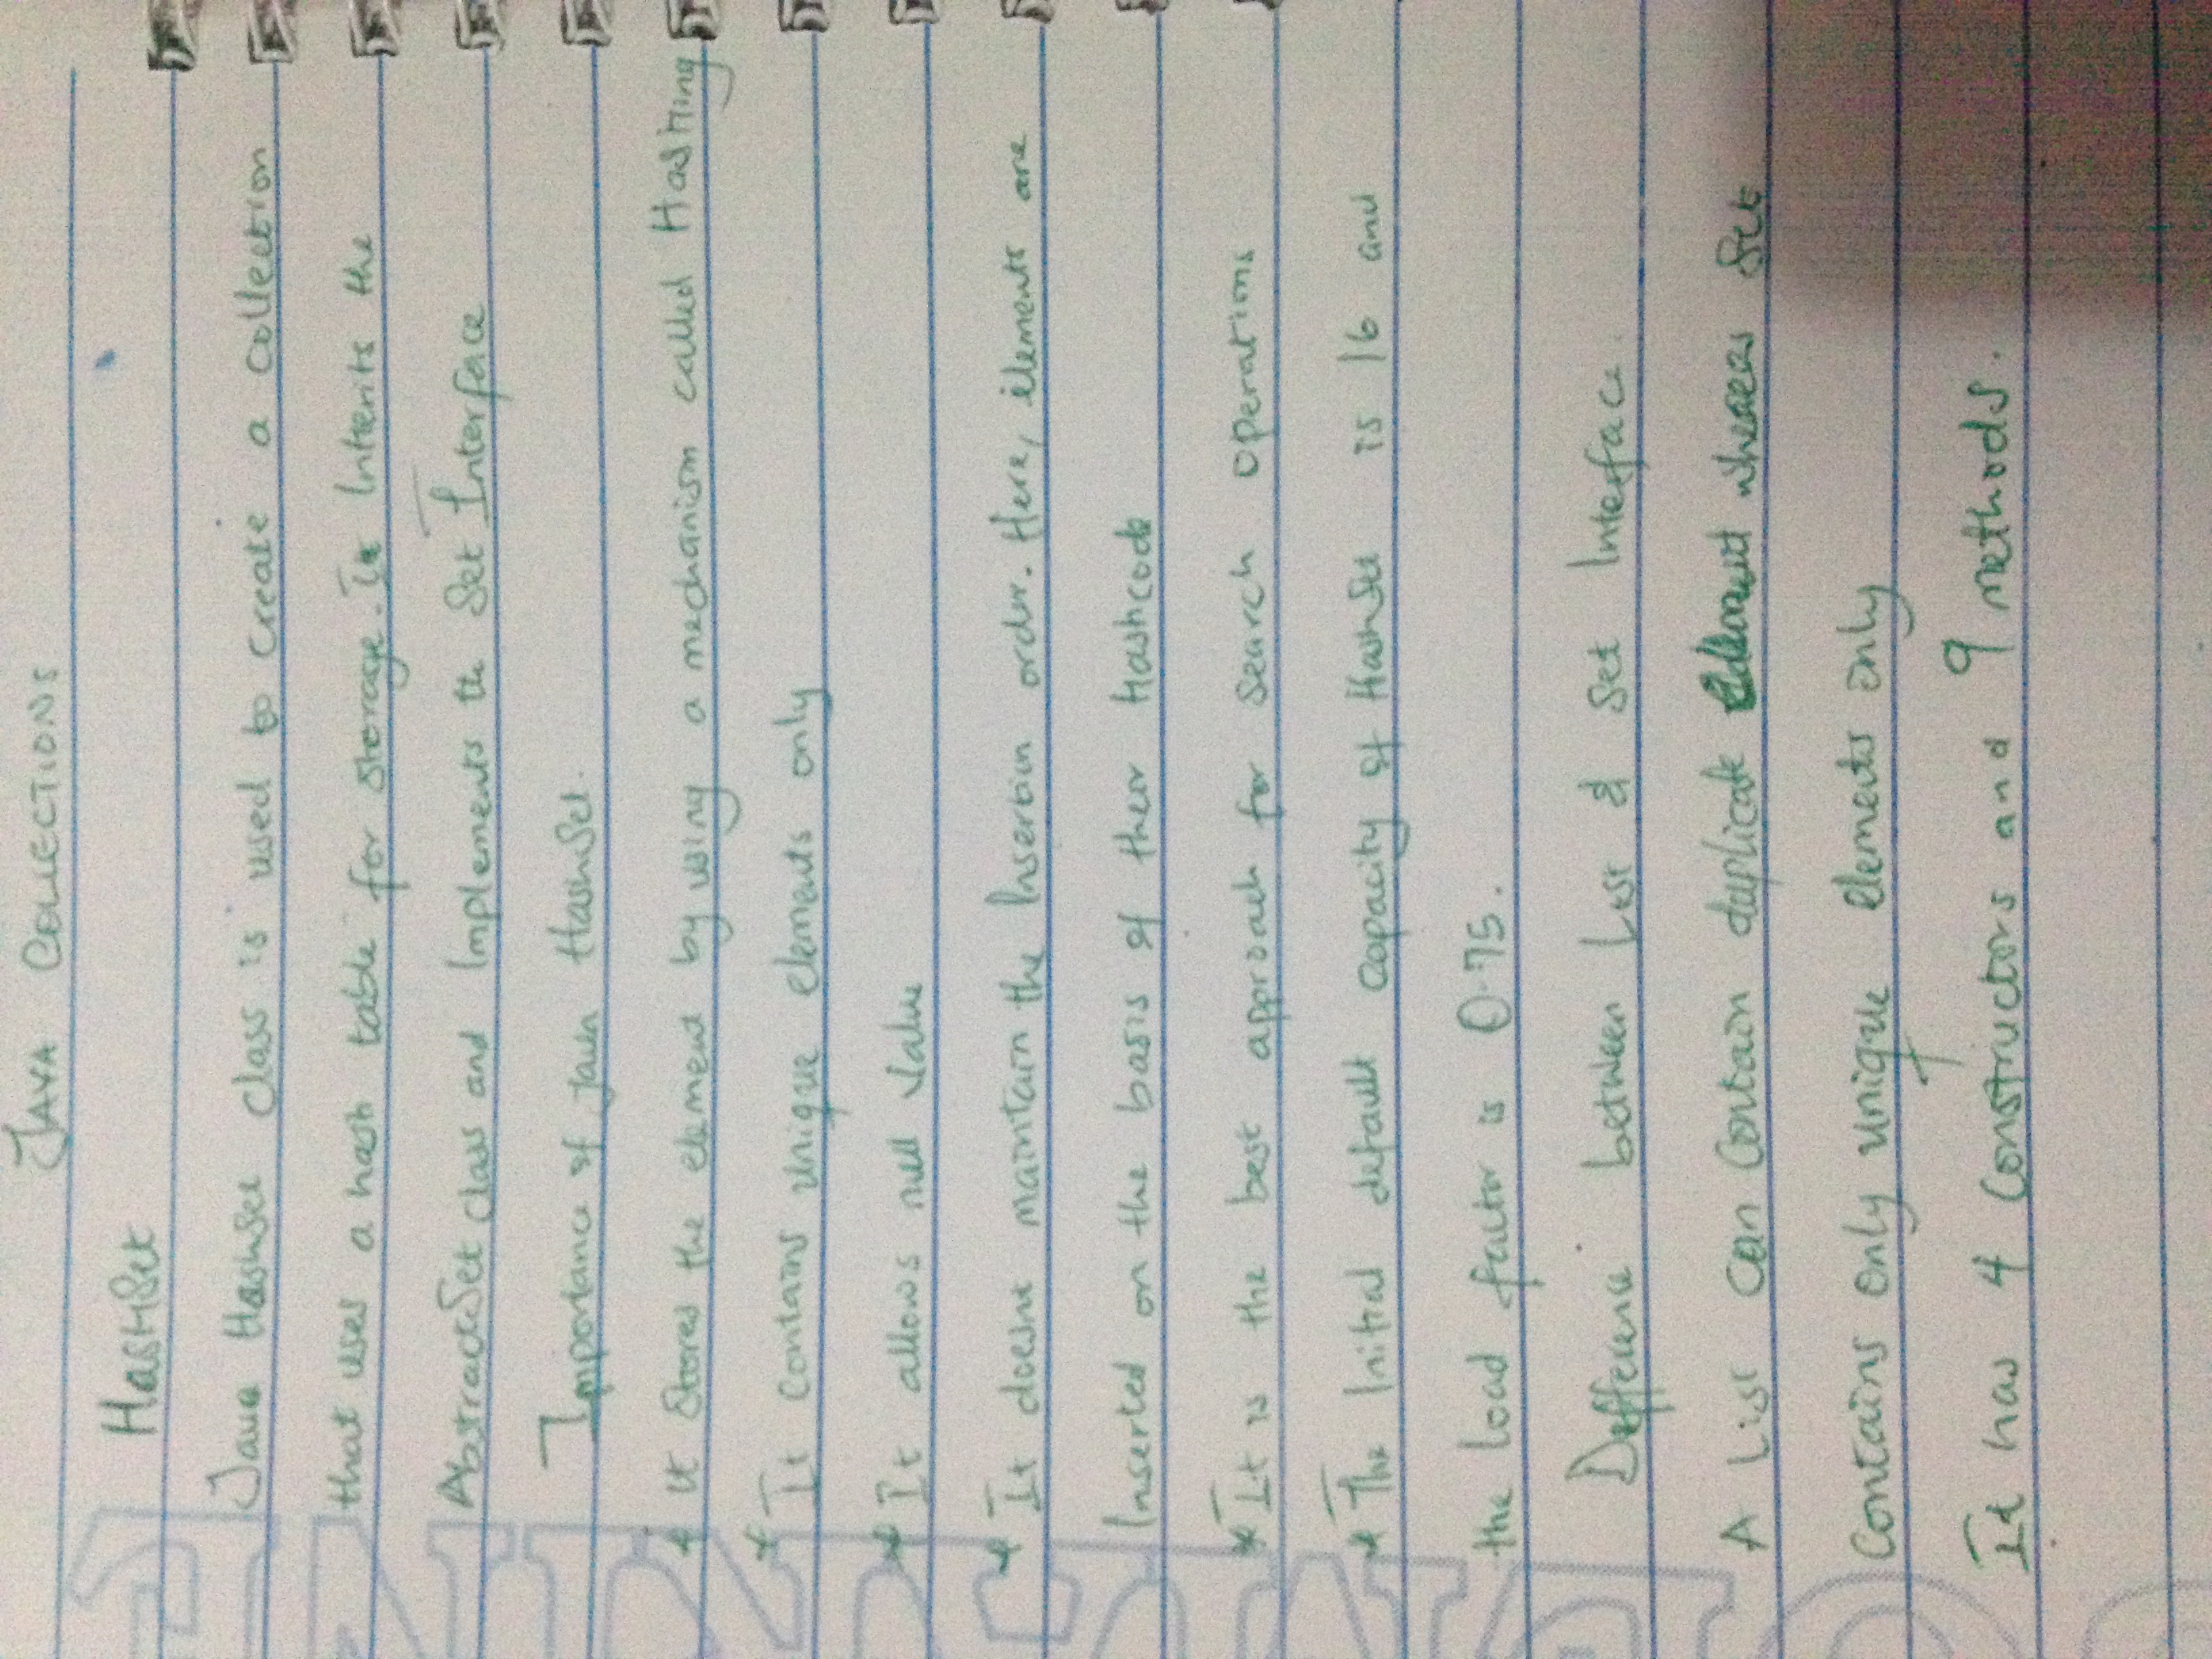 JAVA COLLECTIONS
HashSet
Java HashSet class is used to create a collection
that uses a hash table for storage. It Inherits the
AbstractSet class and Implements the Set Interface
Importance of Java HashSet.
* It Stores the element by using a mechanism called Hashing
* It contains unique elements only
* It allows null value
* It doesnt maintain the Insertion order. Here, elements are
Inserted on the basis of their Hashcode
* It is the best approach for search operations
* The Initial default capacity of HashSet is 16 and
the load factor is 0.75.
Difference between List & Set Interface.
A List can contain duplicate element whereas Set
contains only unique elements only
It has 4 constructors and 9 methods.